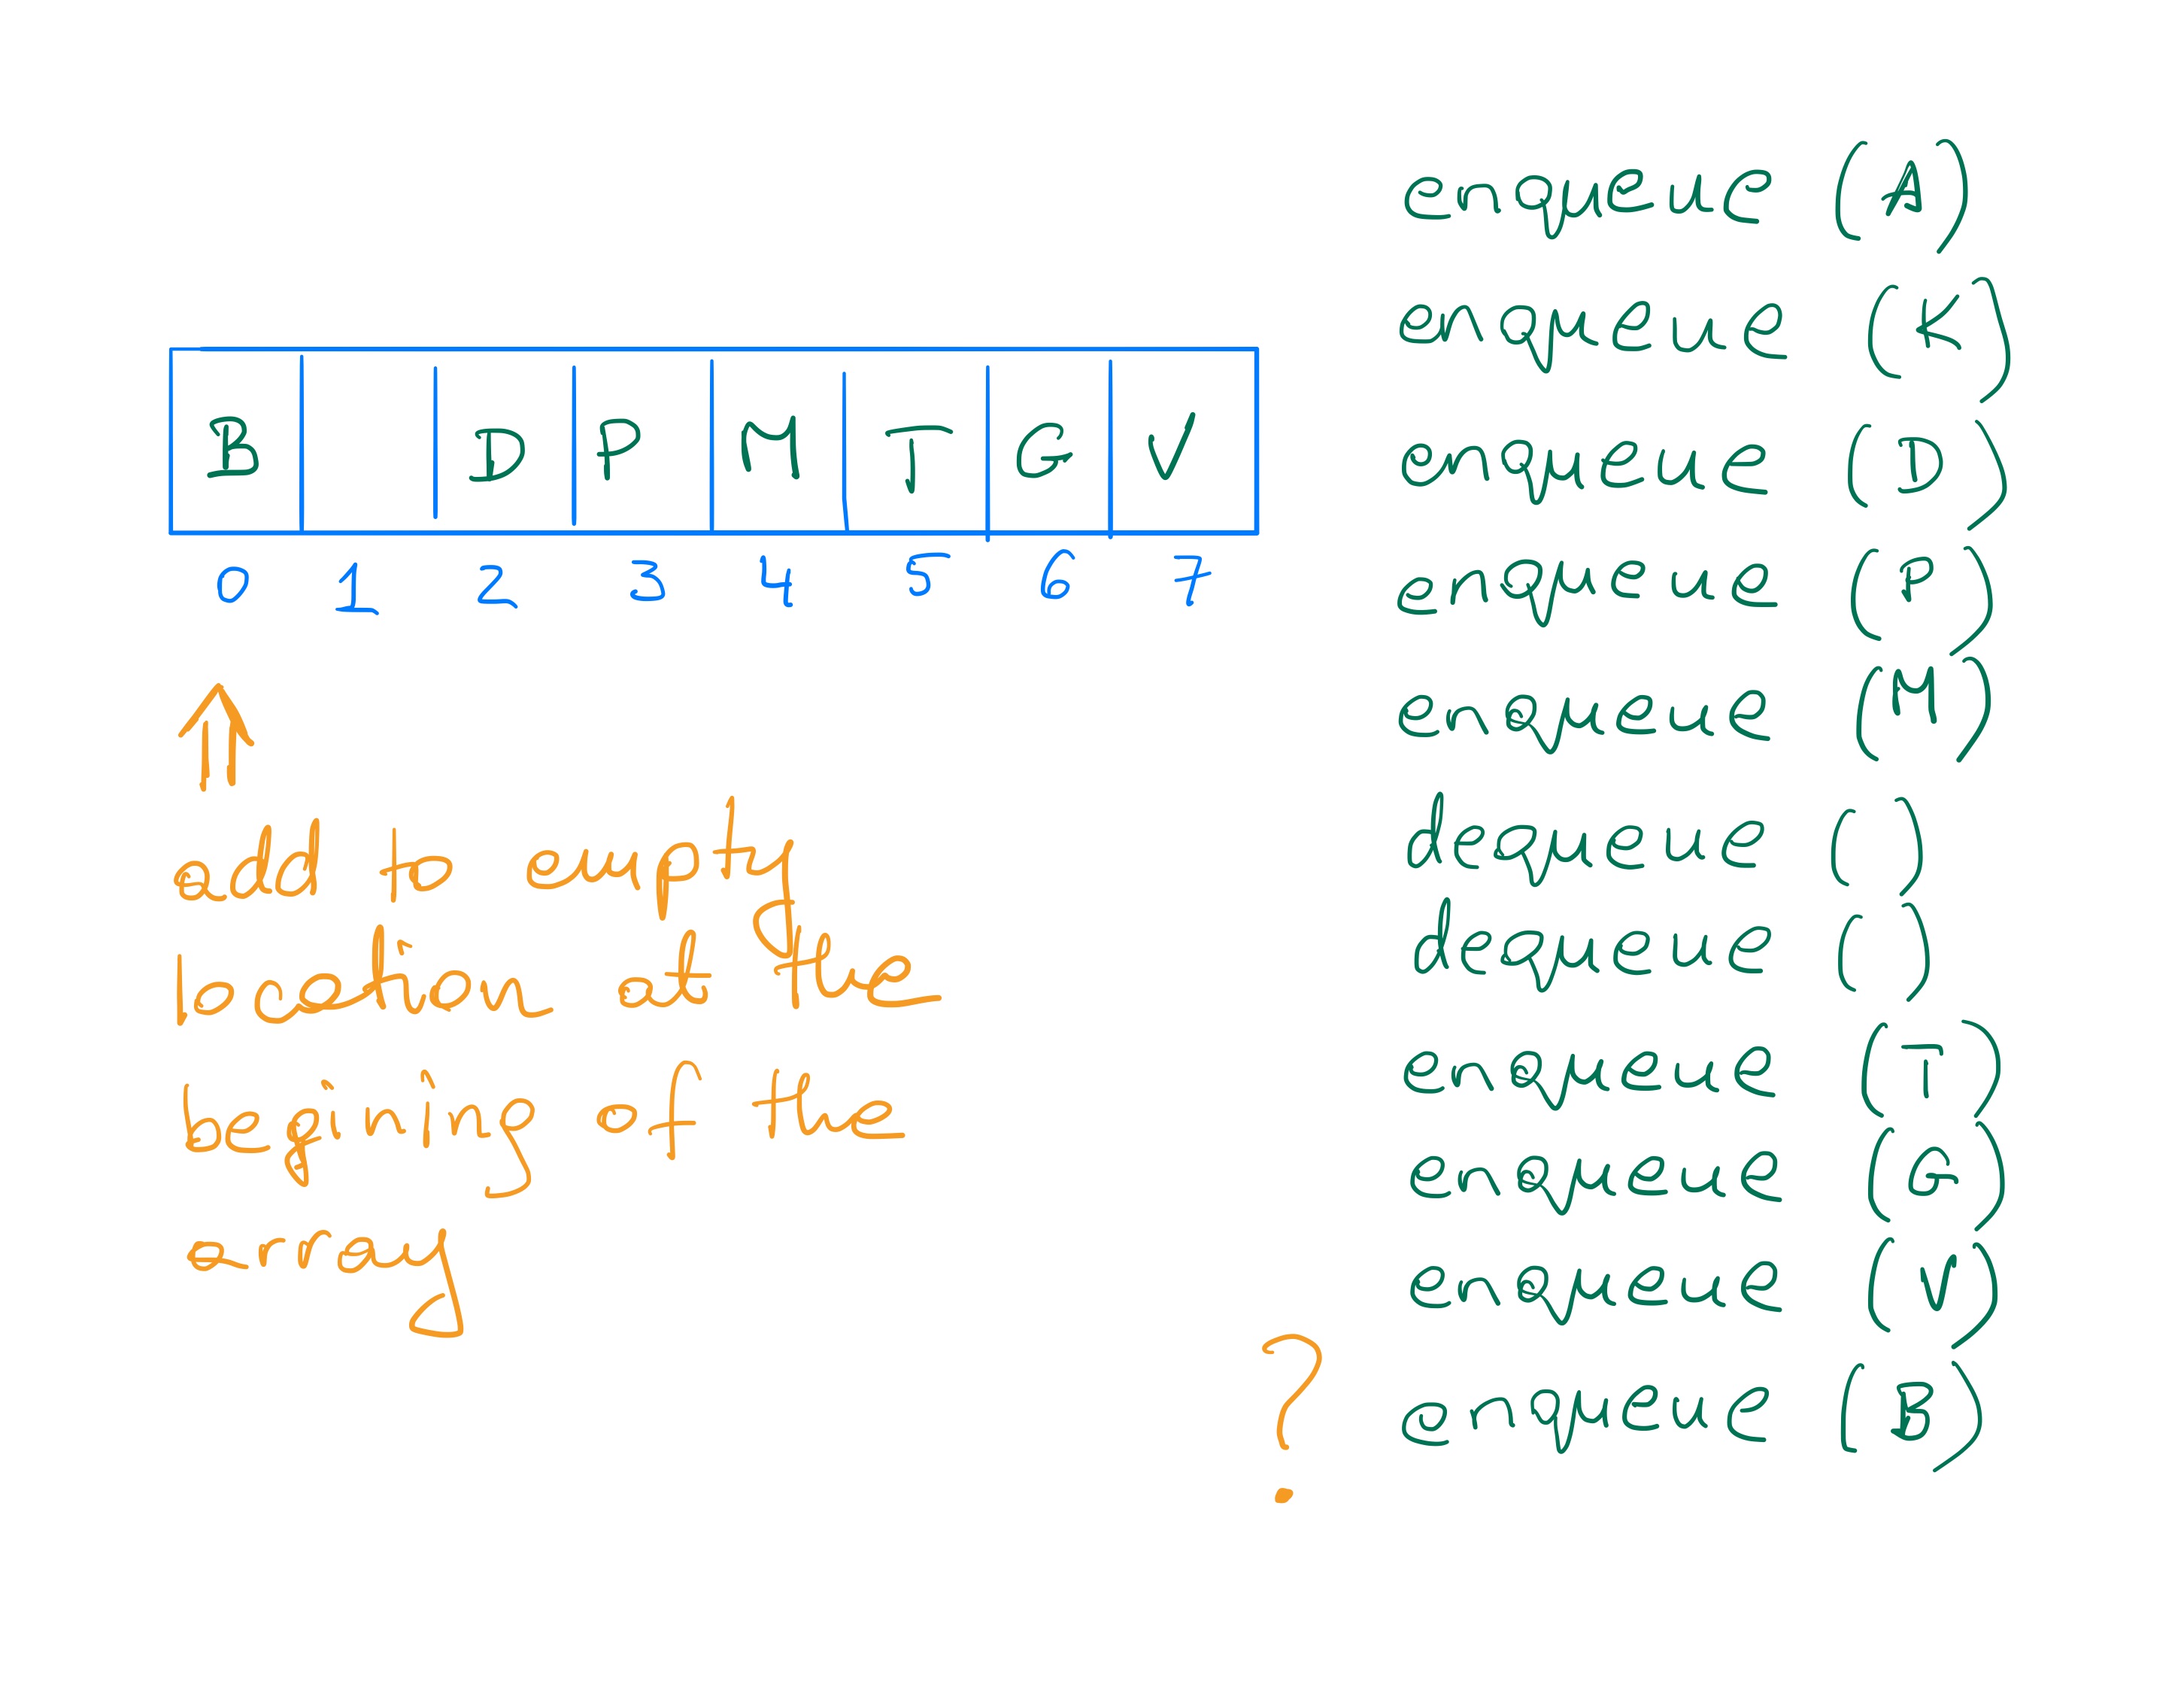 B D P M T G V
0 1 2 3 4 5 6 7
add to empty
location at the
begining of the
array
enqueue (A)
enqueue (K)
enqueue (D)
enqueue (P)
enqueue (M)
dequeue ( )
dequeue ( )
enqueue (T)
enqueue (G)
enqueue (V)
? enqueue (B)